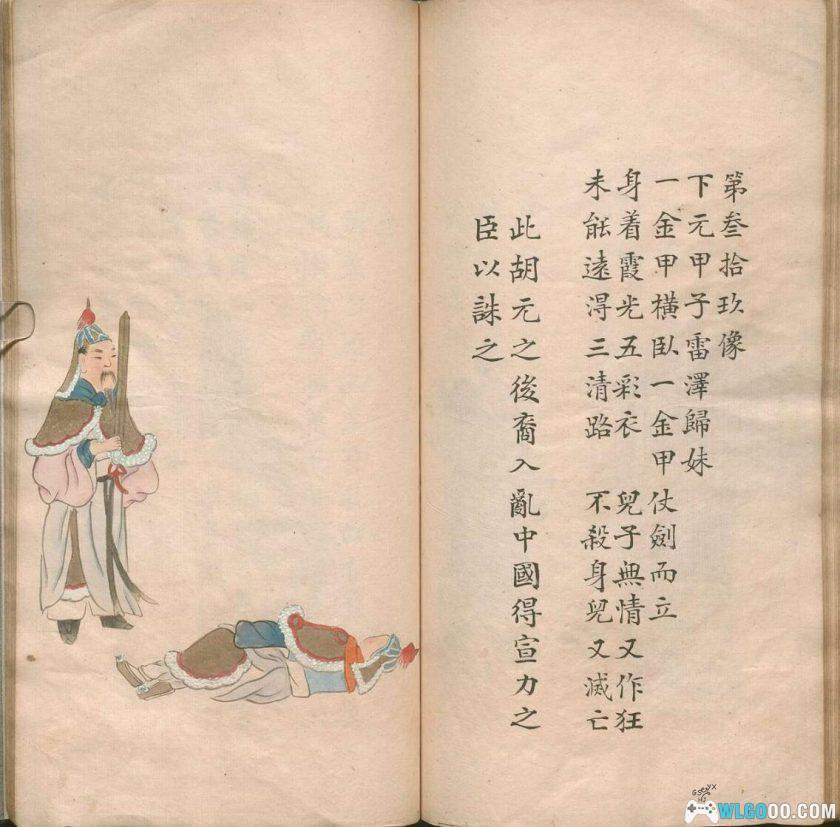 第叁拾玖像
下元甲子雷澤歸妹
一金甲橫臥一金甲仗劍而立
身着霞光五彩衣 兒子無情又作狂
未能遠得三清路 不殺身兒又滅亡
此胡元之後裔入亂中國得宣力之
臣以誅之
WLGOOO.COM